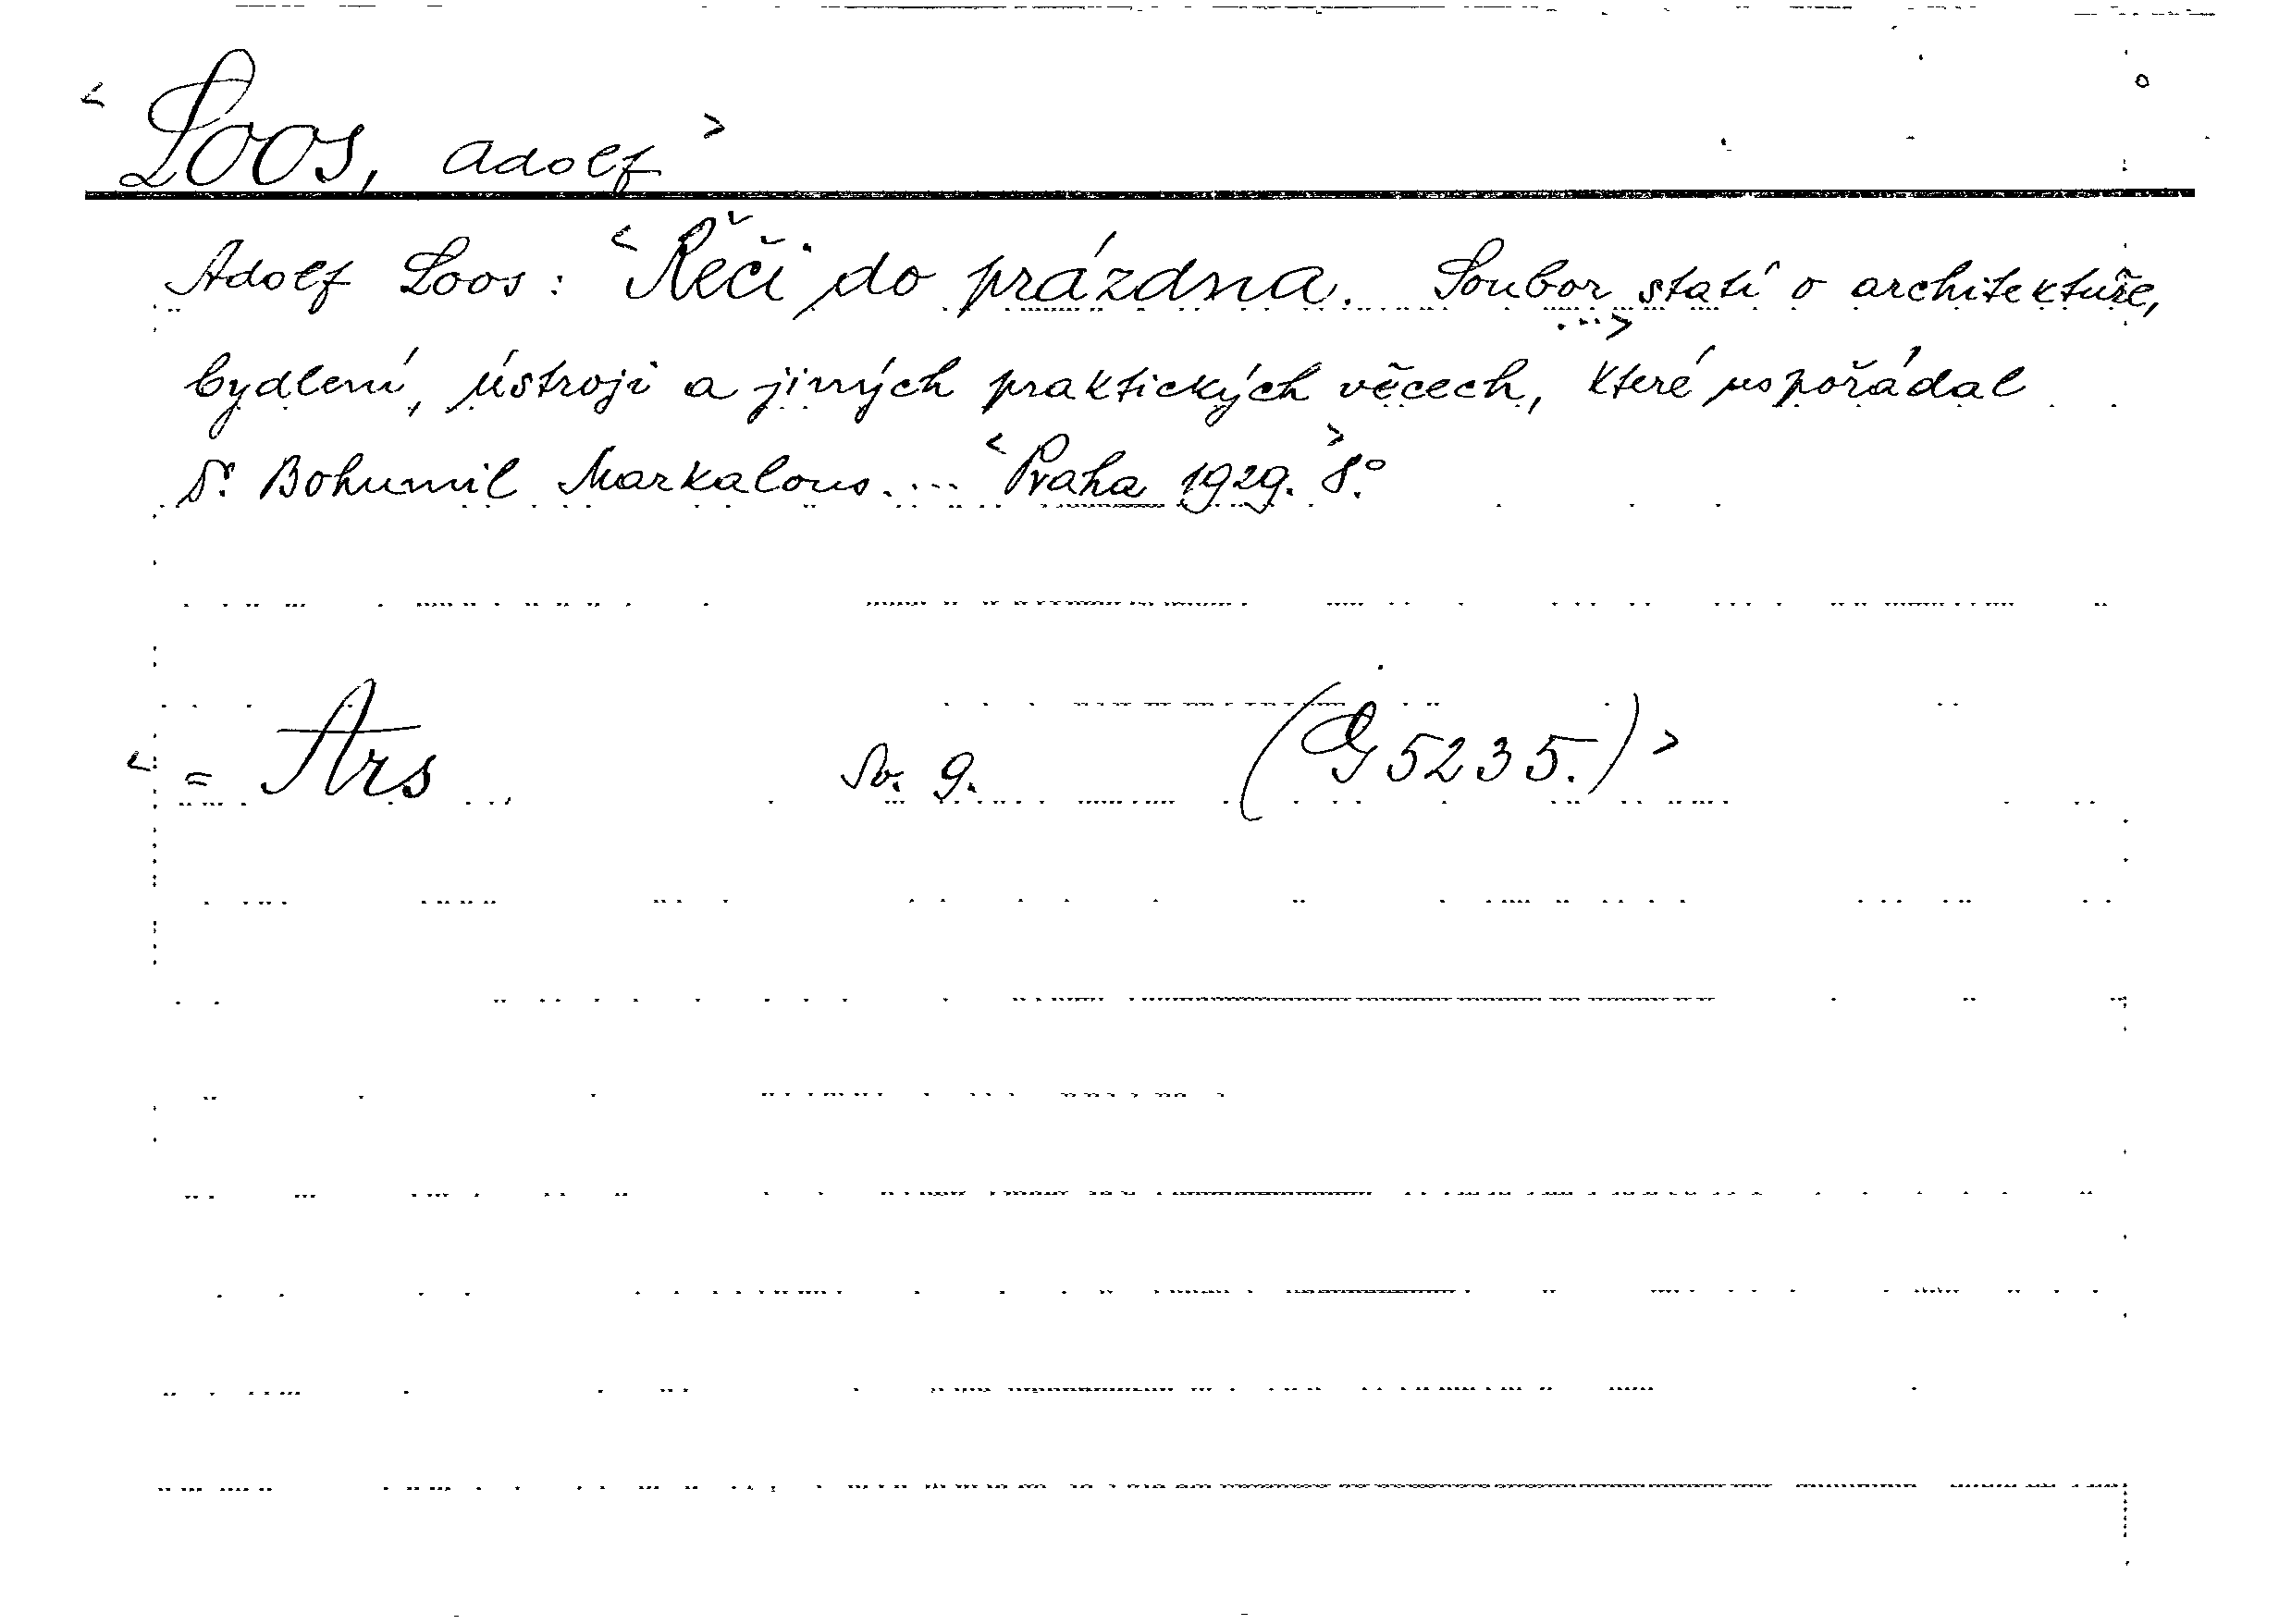 < Loos, Adolf >
Adolf Loos: < Řeči do prázdna. Soubor statí o architektuře, ...>
bydlení, ústroji a jiných praktických věcech, které uspořádal
Dr. Bohumil Markalous. ... < Praha 1929. > 8°.
< = Ars Sv. 9. (G 5235.) >